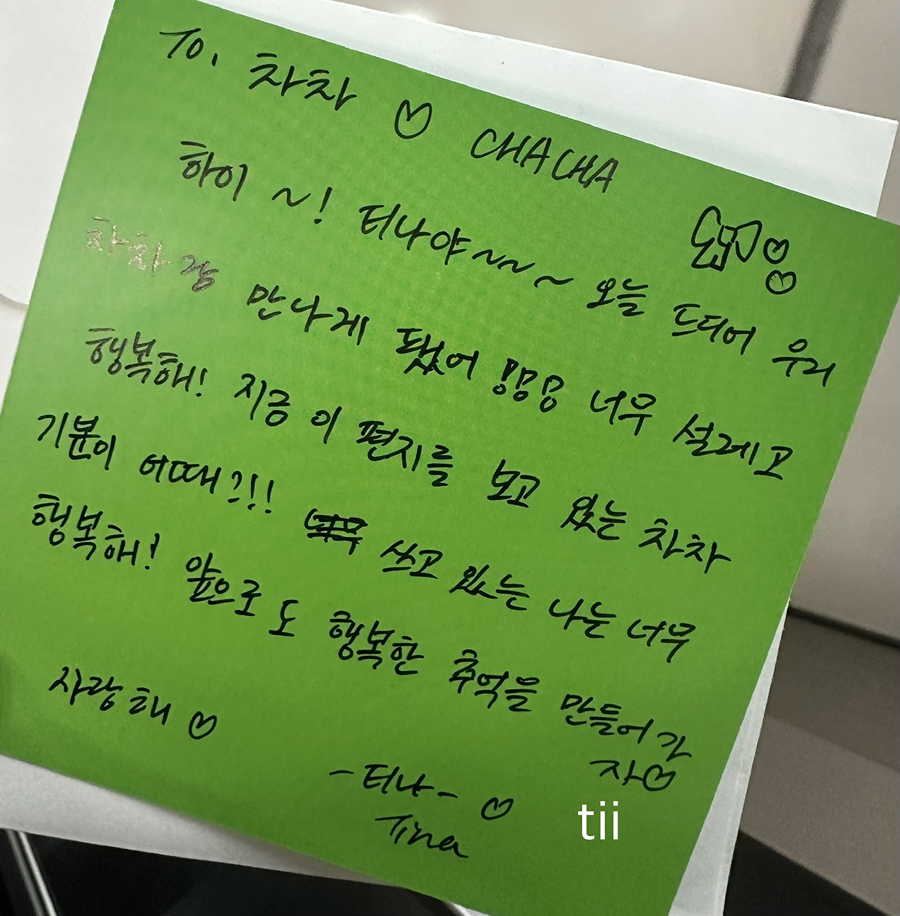 To. 차차 ♡ CHACHA
하이 ~! 티나야~~~ 오늘 드디어 우리
차차랑 만나게 됐어!!! 너무 설레고
행복해! 지금 이 편지를 보고 있는 차차
기분이 어때?!!! 쓰고 있는 나는 너무
행복해! 앞으로도 행복한 추억을 만들어가
자♡
사랑해♡
-티나- ♡
Tina
tii